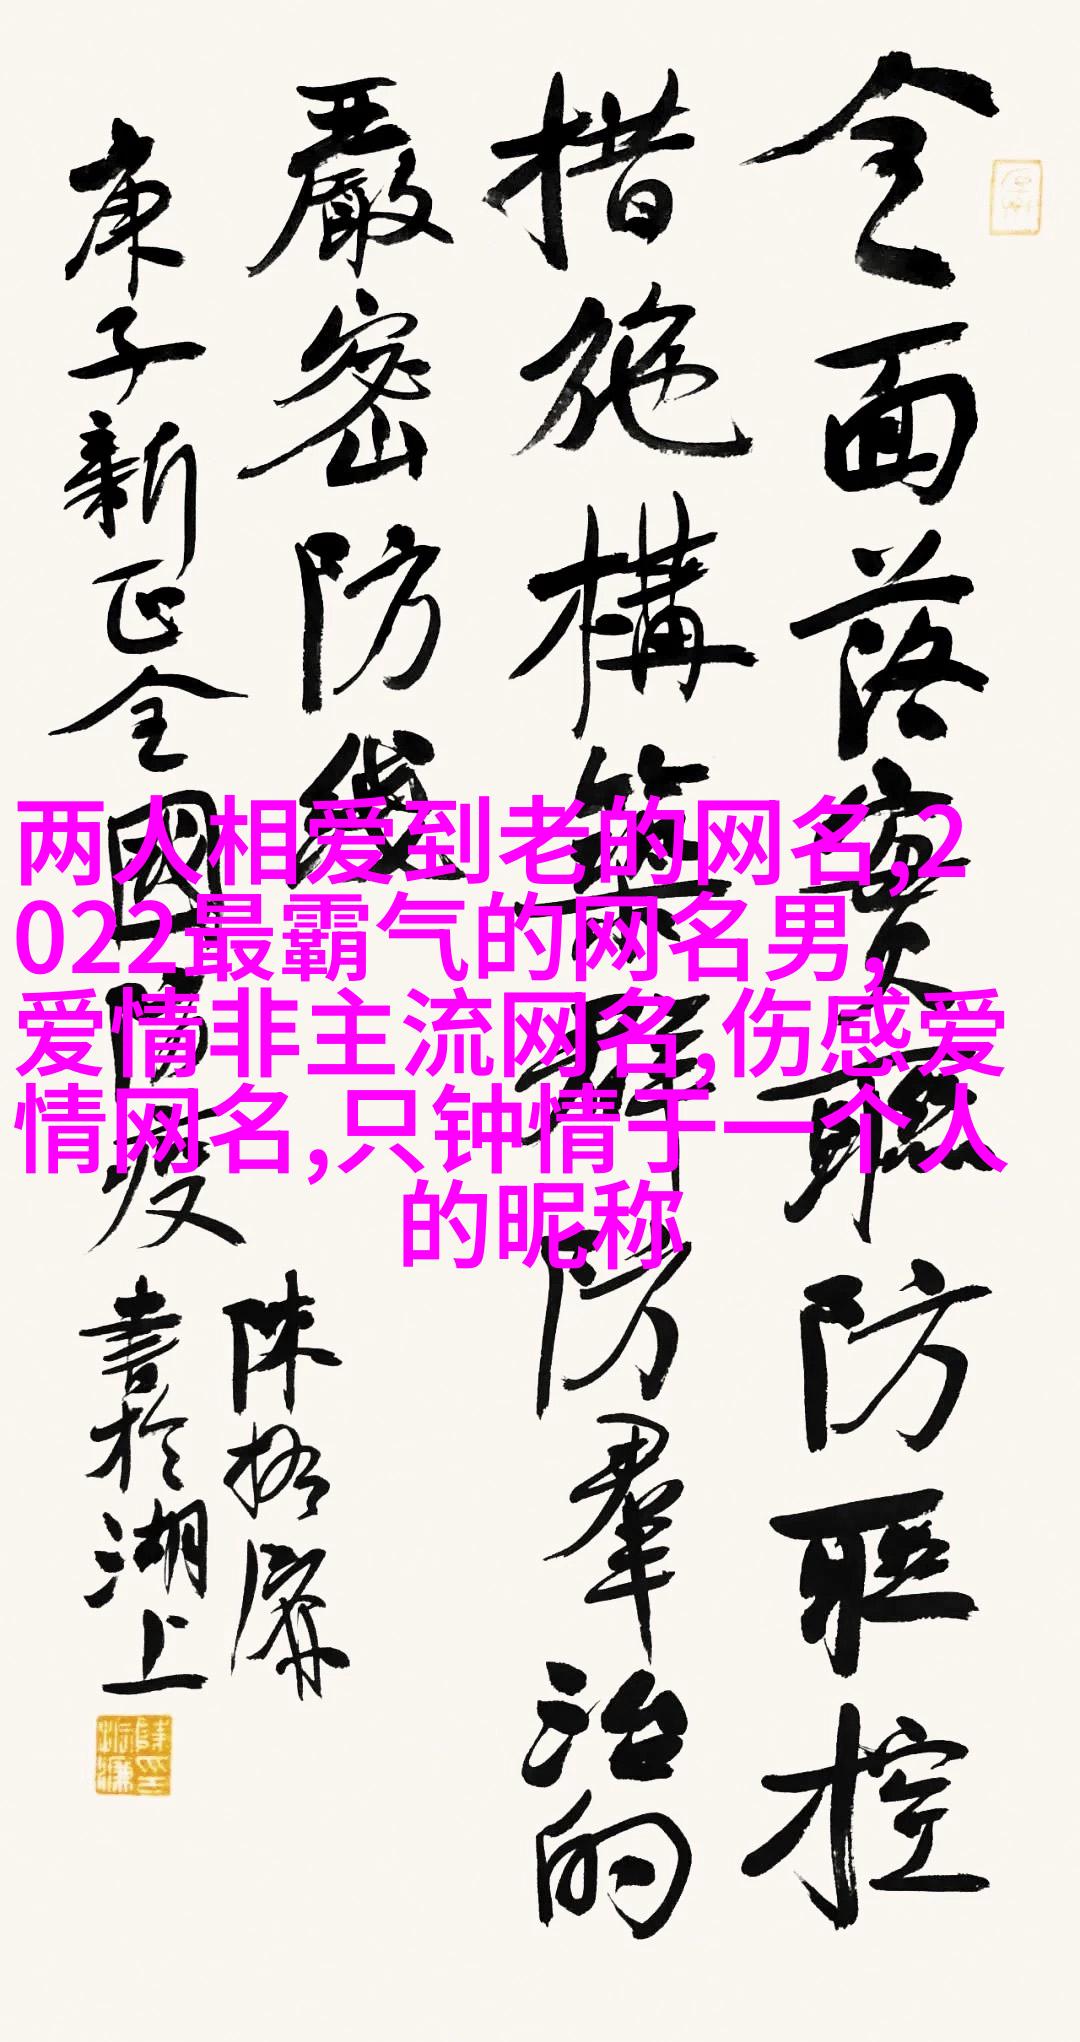 全面落實聯防聯控
措施構築群防羣治的
嚴密防線
庚子新正全國防疫
陳振濂書於湖上
两人相爱到老的网名,2
022最霸气的网名男,
爱情非主流网名,伤感爱
情网名,只钟情于一个人
的昵称